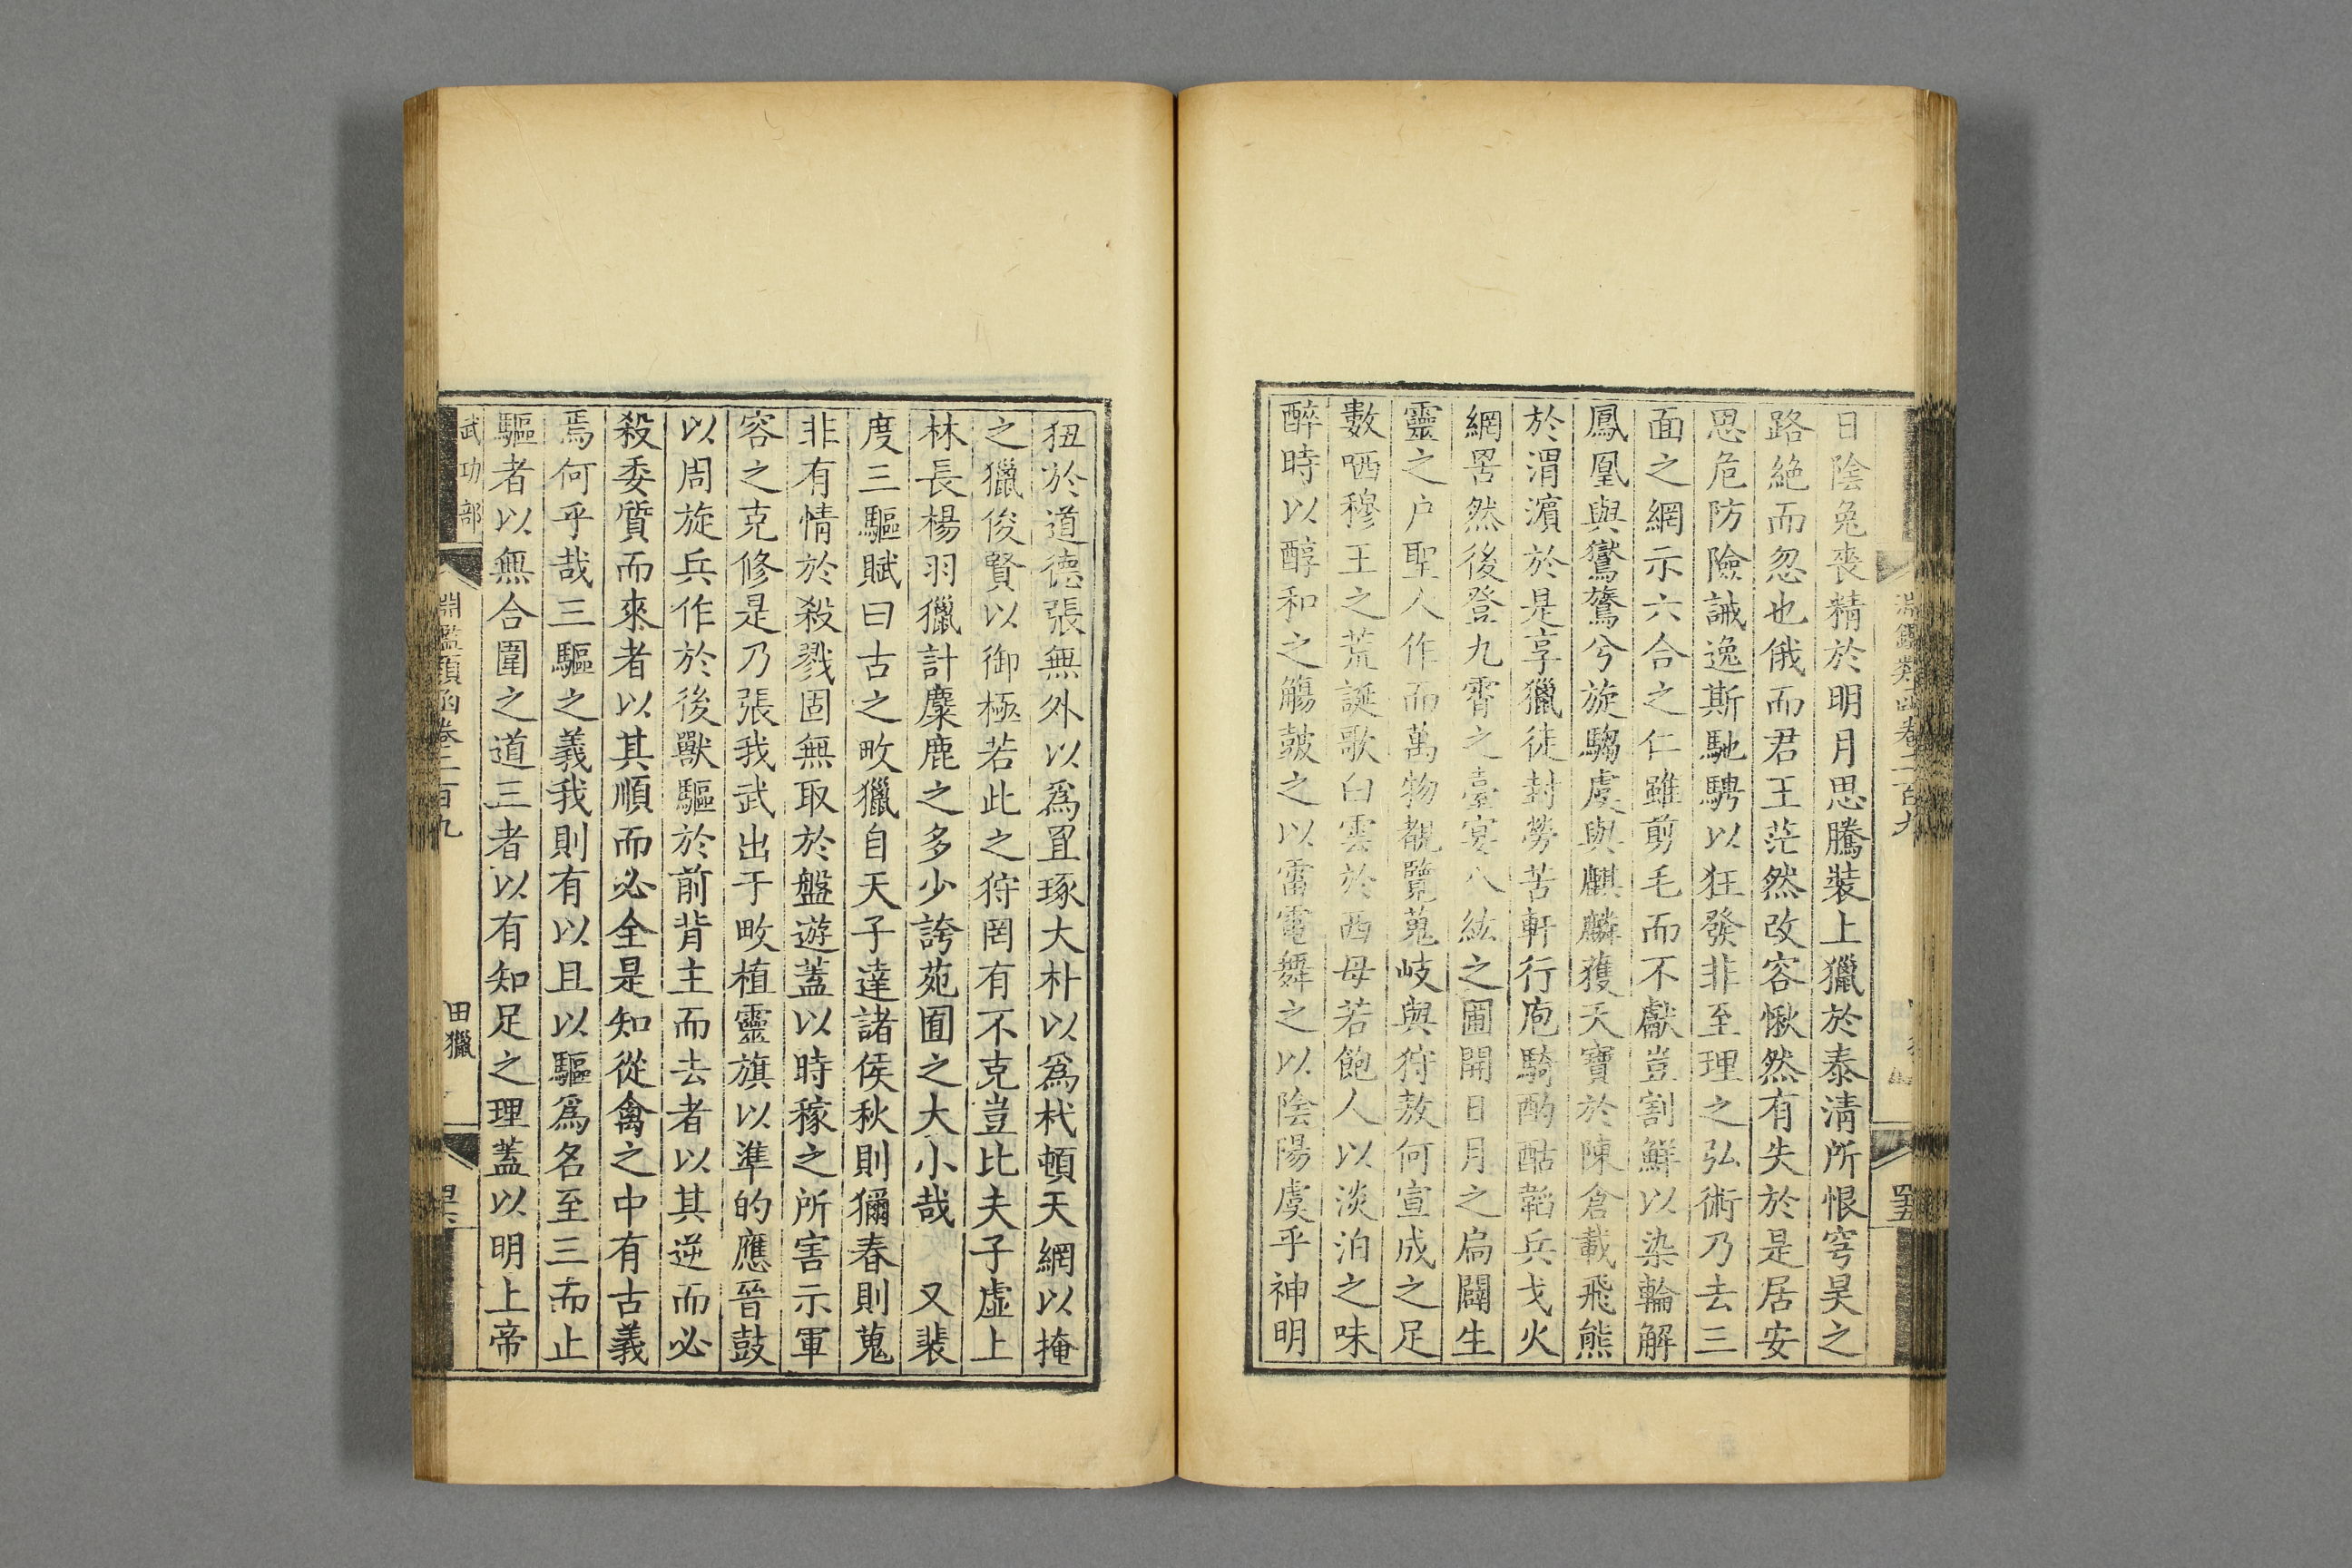 日陰兔喪精於明月思騰裝上獵於泰清所恨穹昊之
路絕而忽也俄而君王茫然改容愀然有失於是居安
思危防險誡逸斯馳騁以狂發非至理之弘術乃去三
面之網示六合之仁雖剪毛而不獻豈割鮮以染輪解
鳳凰與鸑鷟兮旋騶虞與麒麟獲天寶於陳倉載飛熊
於渭濱於是享獵徒封勞苦軒行庖騎酌酤韜兵戈火
網罟然後登九霄之臺宴八紘之圃開日月之扃闢生
靈之户聖人作而萬物覩覽蒐岐與狩敖何宣成之足
數哂穆王之荒誕歌白雲於西母若飽人以淡泊之味
醉時以醇和之觴鼓之以雷電舞之以陰陽虞乎神明
狃於道德張無外以爲罝琢大朴以爲杙頓天網以掩
之獵俊賢以御極若此之狩罔有不克豈比夫子虛上
林長楊羽獵計麋鹿之多少誇苑囿之大小哉 又裴
度三驅賦曰古之畋獵自天子達諸侯秋則獮春則蒐
非有情於殺戮固無取於盤遊蓋以時稼之所害示軍
容之克修是乃張我武出于畋植靈旗以準的應晉鼓
以周旋兵作於後獸驅於前背主而去者以其逆而必
殺委質而來者以其順而必全是知從禽之中有古義
焉何乎哉三驅之義我則有以且以驅爲名至三而止
驅者以無合圍之道三者以有知足之理蓋以明上帝
武功部
淵鑑類函卷二百九
田獵